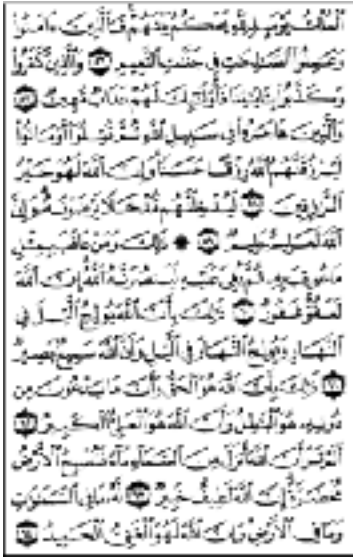 الملك يومئذ لله يحكم بينهم فالذين ءامنوا
وعملوا الصلحت في جنت النعيم ٥٦ والذين كفروا
وكذبوا بـايتنا فأولئك لهم عذاب مهين ٥٧
والذين هاجروا في سبيل الله ثم قتلوا أو ماتوا
ليرزقنهم الله رزقا حسنا وإن الله لهو خير
الرزقين ٥٨ ليدخلنهم مدخلا يرضونه وإن
الله لعليم حليم ٥٩ ۞ ذلك ومن عاقب بمثل
ما عوقب به ثم بغي عليه لينصرنه الله إن الله
لعفو غفور ٦٠ ذلك بأن الله يولج اليل في
النهار ويولج النهار في اليل وأن الله سميع بصير
٦١ ذلك بأن الله هو الحق وأن ما يدعون من
دونه هو البطل وأن الله هو العلي الكبير ٦٢
ألم تر أن الله أنزل من السماء ماء فتصبح الأرض
مخضرة إن الله لطيف خبير ٦٣ له ما في السموت
وما في الأرض وإن الله لهو الغني الحميد ٦٤